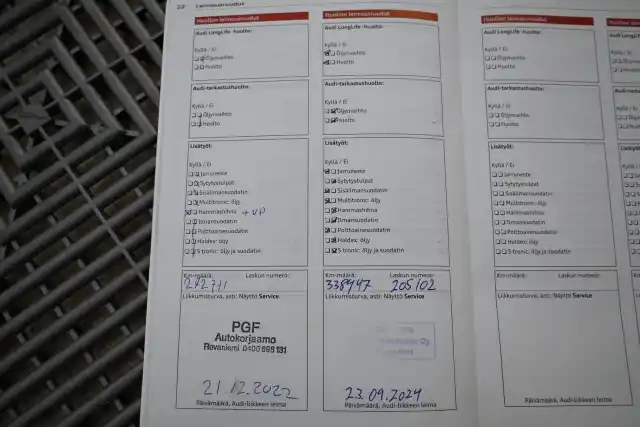 Huollon leimausruudut
Audi LongLife -huolto:
Kyllä / Ei
Öljynvaihto
Huolto
Audi-tarkastushuolto:
Kyllä / Ei
Öljynvaihto
Huolto
Lisätyöt:
Kyllä / Ei
Jarruneste
Sytytystulpat
Sisäilmansuodatin
Multitronic: öljy
Hammashihna + VP
Ilmansuodatin
Polttoainesuodatin
Haldex: öljy
S tronic: öljy ja suodatin
Km-määrä: Laskun numero:
Liikkumisturva, asti: Näyttö Service
PGF
Autokorjaamo
21.12.2022
Päivämäärä, Audi-liikkeen leima
Huollon leimausruudut
Audi LongLife -huolto:
Kyllä / Ei
Öljynvaihto
Huolto
Audi-tarkastushuolto:
Kyllä / Ei
Öljynvaihto
Huolto
Lisätyöt:
Kyllä / Ei
Jarruneste
Sytytystulpat
Sisäilmansuodatin
Multitronic: öljy
Hammashihna
Ilmansuodatin
Polttoainesuodatin
Haldex: öljy
S tronic: öljy ja suodatin
Km-määrä: Laskun numero:
338947 205102
Liikkumisturva, asti: Näyttö Service
23.09.2024
Päivämäärä, Audi-liikkeen leima
Huollon leimausruudut
Audi LongLife -huolto:
Kyllä / Ei
Öljynvaihto
Huolto
Audi-tarkastushuolto:
Kyllä / Ei
Öljynvaihto
Huolto
Lisätyöt:
Kyllä / Ei
Jarruneste
Sytytystulpat
Sisäilmansuodatin
Multitronic: öljy
Hammashihna
Ilmansuodatin
Polttoainesuodatin
Haldex: öljy
S tronic: öljy ja suodatin
Km-määrä: Laskun numero:
Liikkumisturva, asti: Näyttö Service
Päivämäärä, Audi-liikkeen leima